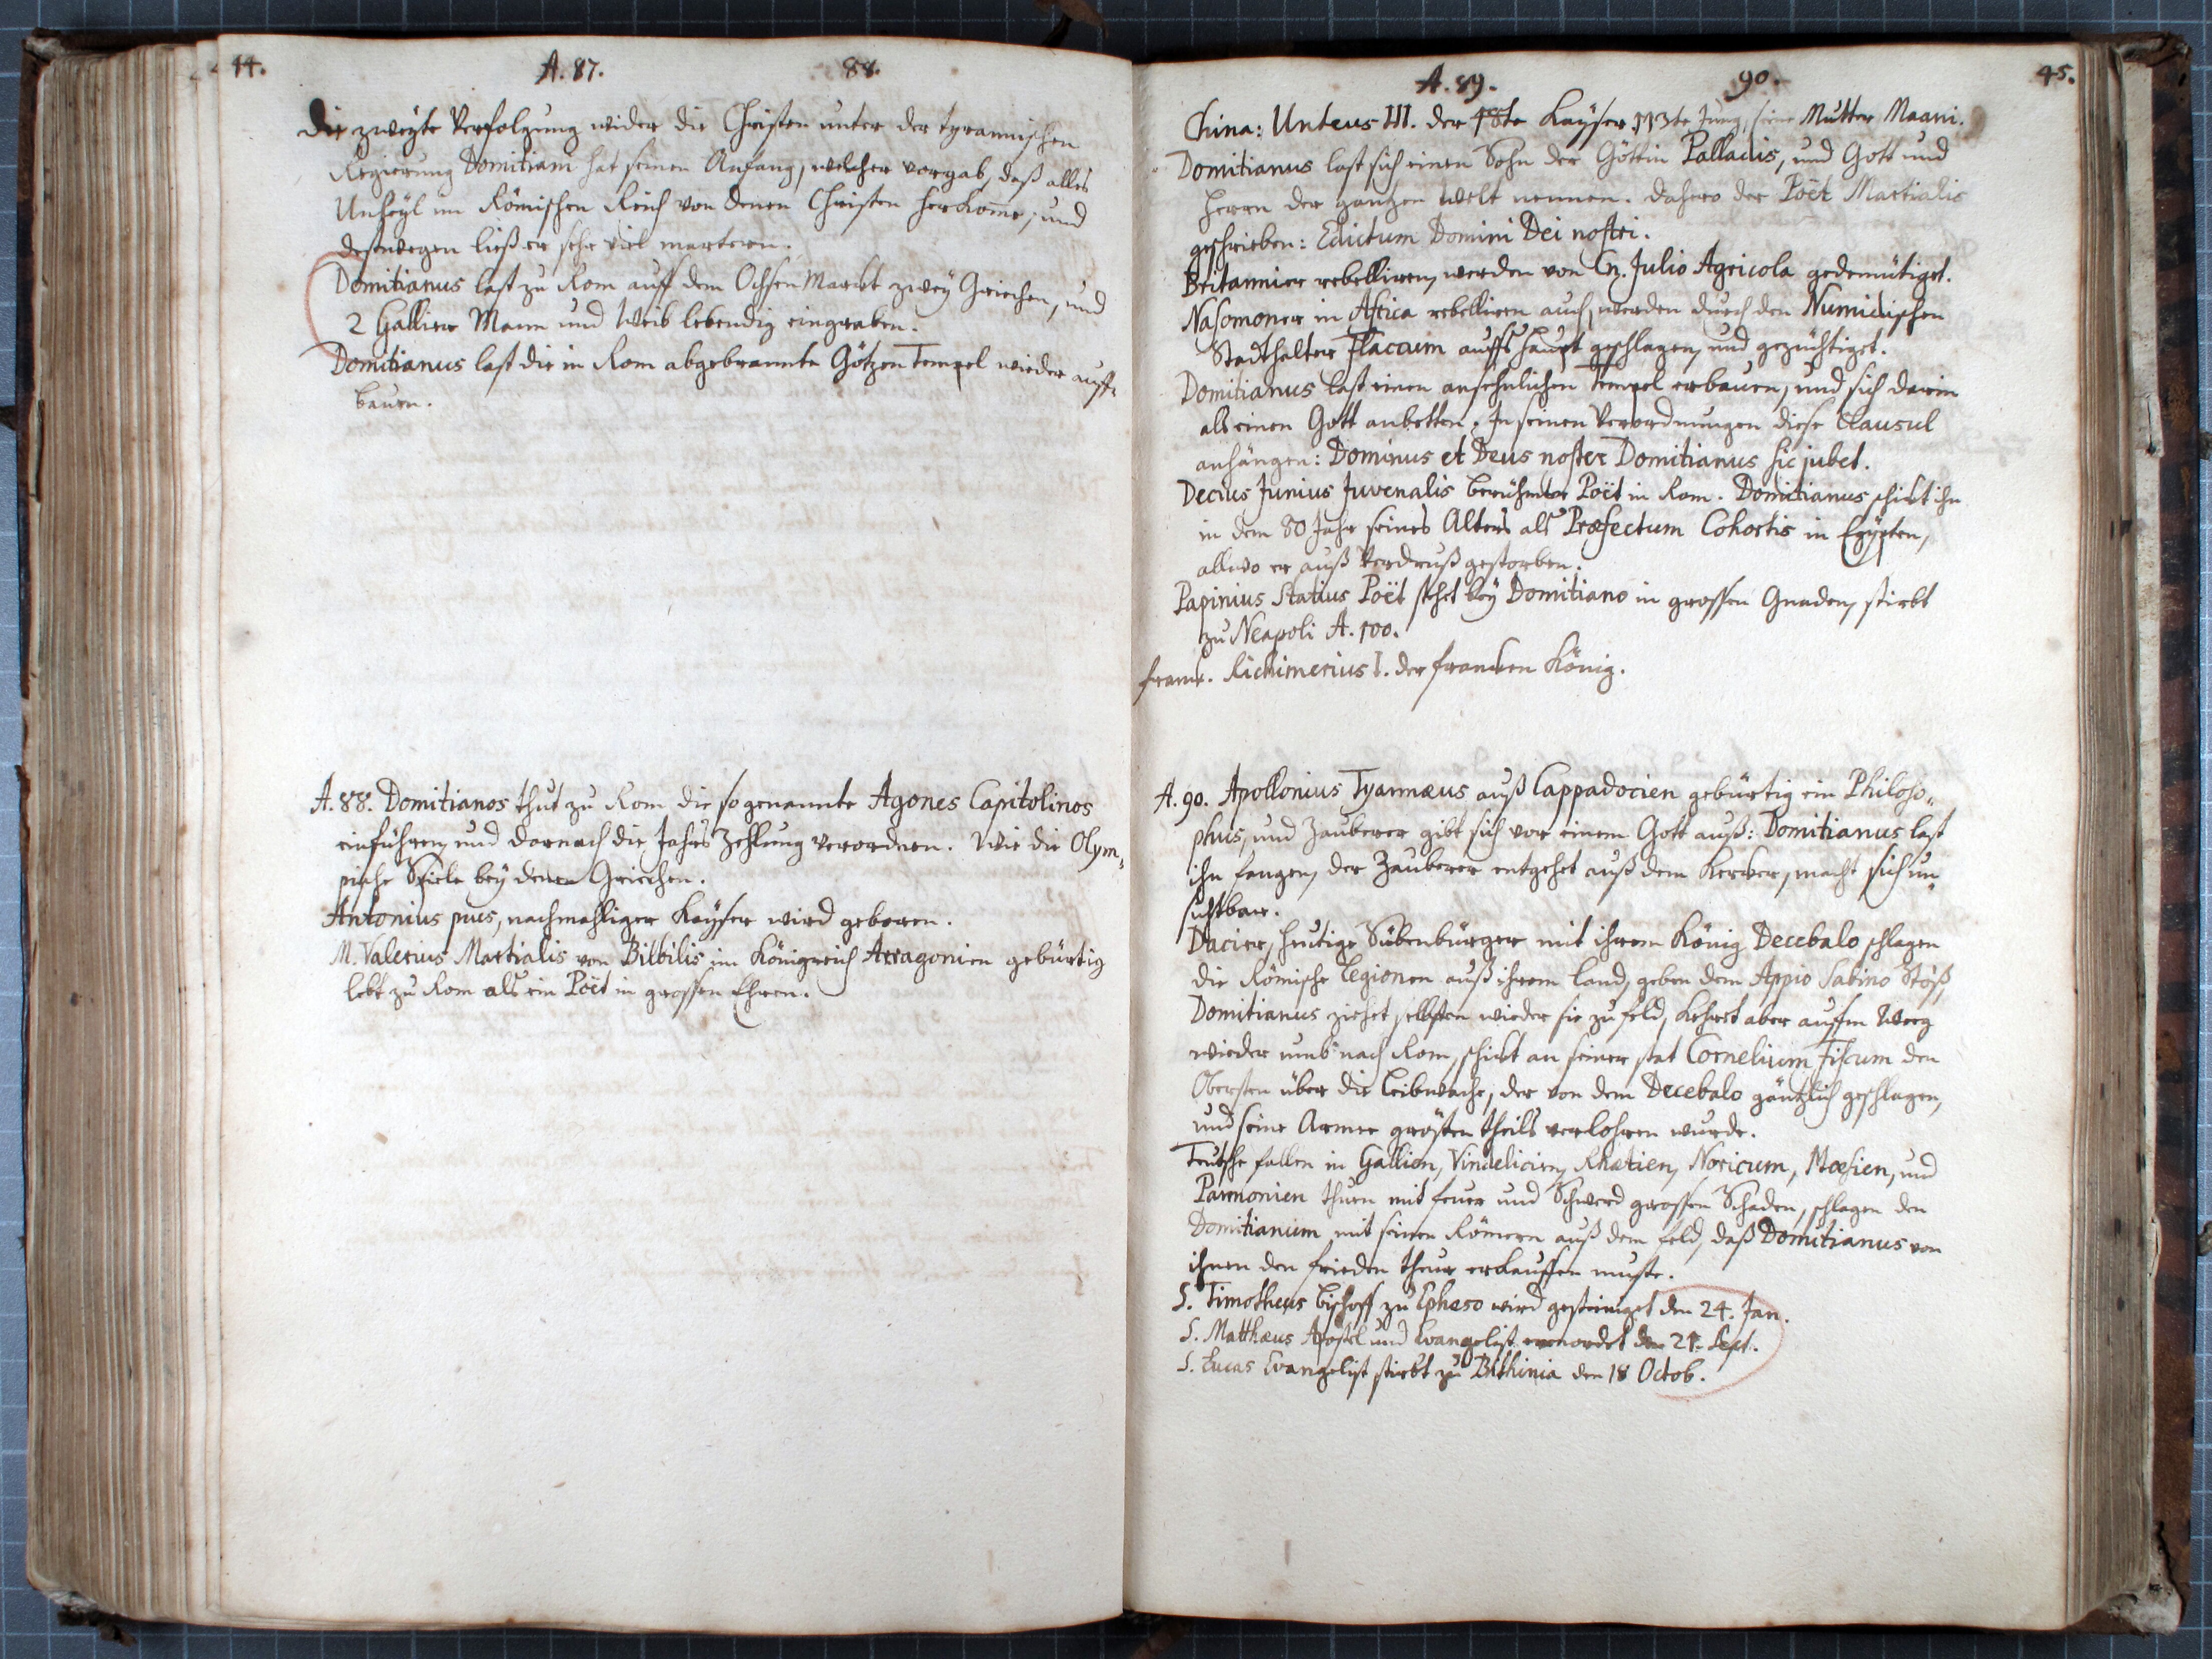 44.
A. 87. 88.
Die zweyte Verfolgung wider die Christen unter der tyrannischen
Regierung Domitiani hat seinen Anfang, welcher vorgab, daß alles
Unheyl im Römischen Reich von denen Christen herkome, und
deßwegen ließ er sehr viel martern.
Domitianus last zu Rom auff dem Ochsen Marckt zwey Griechen, und
2 Gallier Mann und Weib lebendig eingraben.
Domitianus last die in Rom abgebrannte Götzen Tempel wieder auff-
bauen.
A. 88. Domitianos thut zu Rom die so genannte Agones Capitolinos
einführen, und darnach die Jahrs Zehlung verordnen. Wie die Olym„
pische Spiele bey denen Griechen.
Antonius pius, nachmahliger Kayser wird geboren.
M. Valerius Martialis von Bilbilis im Königreich Arragonien gebürtig
lebt zu Rom als ein Poët in grossen Ehren.
A. 89. 90. 45.
China: Unteus III. der 18te Kayser. 113te Jung, seine Mutter Maani.
Domitianus last sich einen Sohn der Göttin Palladis, und Gott und
Herrn der gantzen Welt nennen. Dahero der Poët Martialis
geschrieben: Edictum Domini Dei nostri.
Britannier rebelliren, werden von Cn. Julio Agricola gedemütiget.
Nasomoner in Africa rebelliren auch, werden durch den Numidischen
Stadthalter Flaccum auffs Haupt geschlagen, und gezüchtiget.
Domitianus last einen ansehnlichen Tempel erbauen, und sich darin
als einen Gott anbetten. In seinen Verordnungen diese Clausul
anhängen: Dominus et Deus noster Domitianus sic jubet.
Decius Junius Juvenalis berühmter Poët in Rom. Domitianus schickt ihn
in dem 80 Jahr seines Alters als Præfectum Cohortis in Egypten,
allwo er auß Verdruß gestorben.
Papinius Statius Poët stehet bey Domitiano in grossen Gnaden, stirbt
zu Neapoli A. 100.
Franck. Richimerius I. der Francken König.
A. 90. Apollonius Tyannæus auß Cappadocien gebürtig ein Philoso„
phus, und Zauberer gibt sich vor einem Gott auß: Domitianus last
ihn fangen, der Zauberer entgehet auß dem Kercker, macht sich un„
sichtbar.
Dacier, heutige Sübenbürger mit ihrem König Decebalo schlagen
die Römische Legionen auß ihrem Land, geben dem Appio Sabino Stöß,
Domitianus ziehet selbsten wieder sie zu feld, kehret aber auffm Weeg
wieder umb nach Rom, schickt an seiner stat Cornelium Fiscum den
Obersten über die Leibwache, der von dem Decebalo gäntzlich geschlagen,
und seine Armee grösten theils verlohren wurde.
Teutsche fallen in Gallien, Vindelicien, Rhætien, Noricum, Mœsien, und
Pannonien thuen mit feuer und Schwerd grossen Schaden, schlagen den
Domitianum mit seinen Römern auß dem feld, daß Domitianus von
ihnen den frieden theur erkauffen muste.
S. Timotheus Bischoff zu Epheso wird gesteiniget den 24. Jan.
S. Matthæus Apostel und Evangelist ermordet den 21. Sept.
S. Lucas Evangelist stirbt zu Bithinia den 18 Octob.